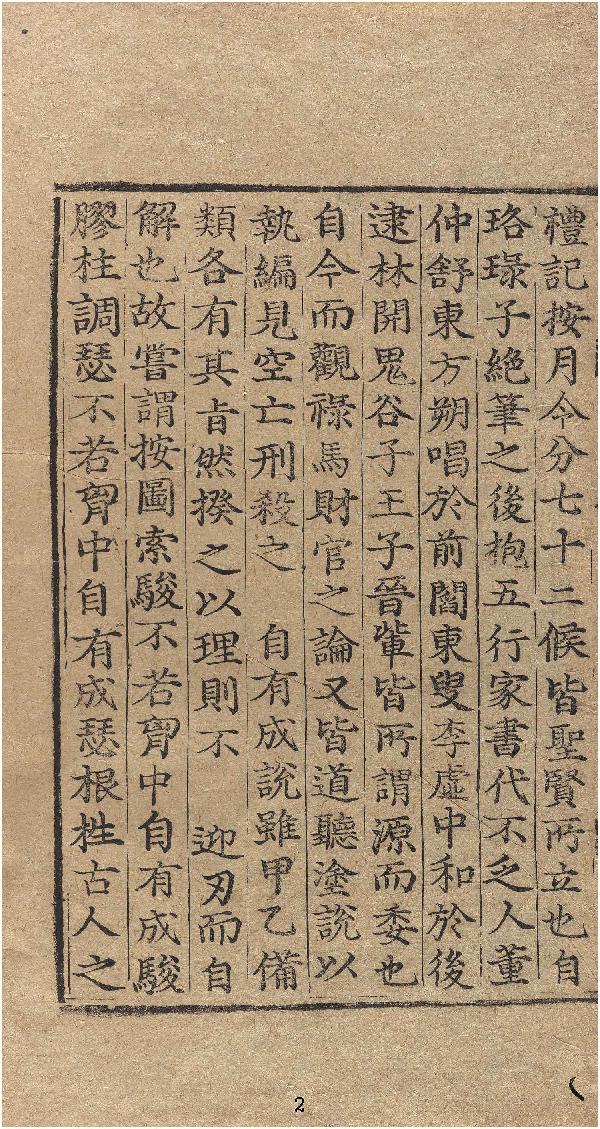 禮記按月令分七十二候皆聖賢所立也自
珞琭子絶筆之後抱五行家書代不乏人董
仲舒東方朔唱於前閻東叟李虛中和於後
逮林開鬼谷子王子晉輩皆所謂源而委也
自今而觀祿馬財官之論又皆道聽塗說以
執編見空亡刑殺之　自有成說雖甲乙備
類各有其旨然揆之以理則不　迎刃而自
解也故嘗謂按圖索駿不若胷中自有成駿
膠柱調瑟不若胷中自有成瑟根性古人之
2